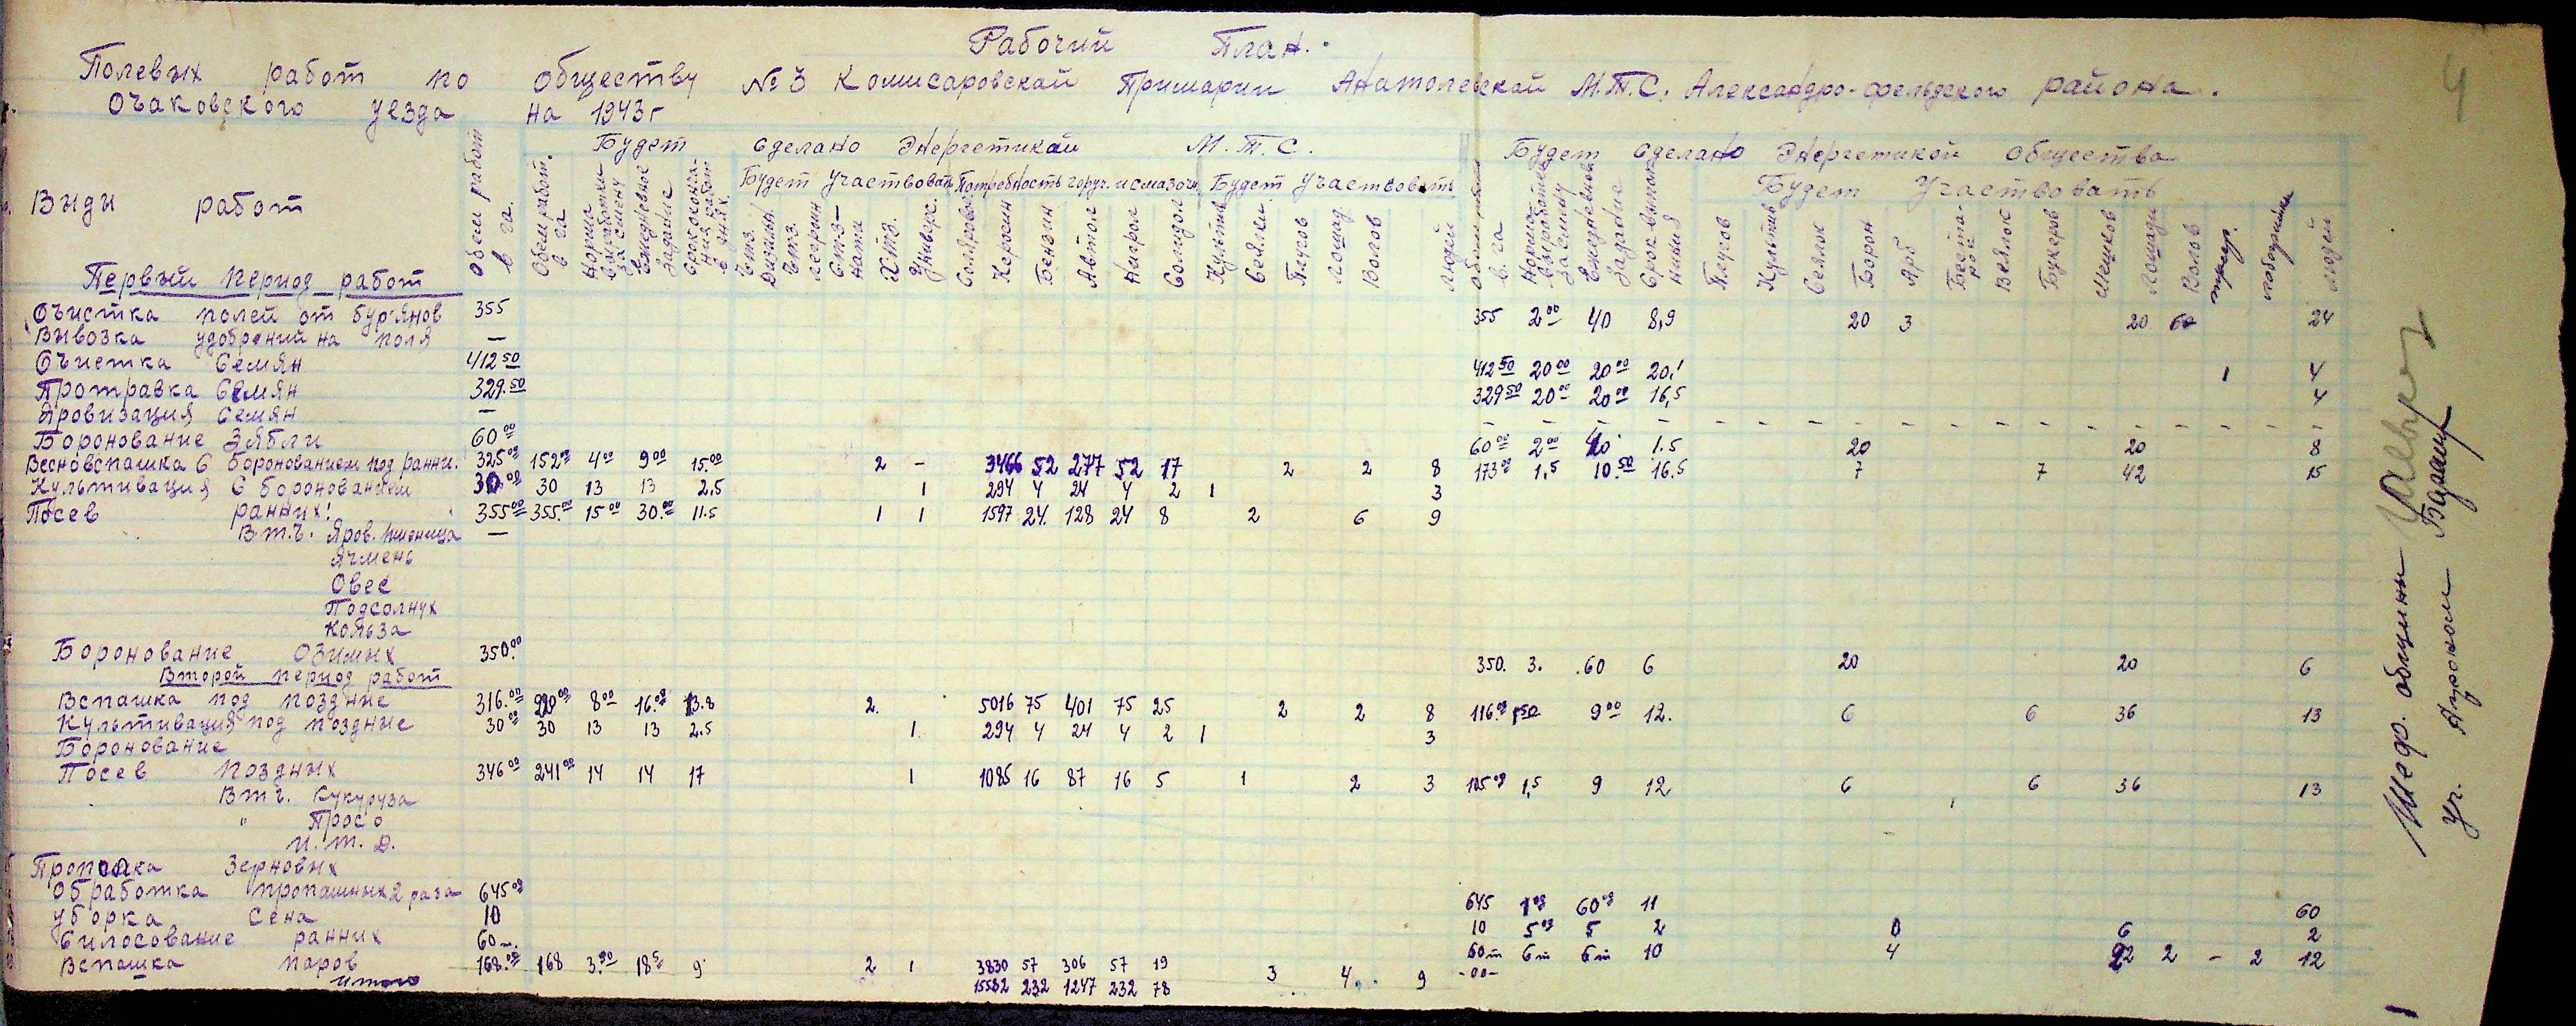 Рабочий План.
Полевых работ по обществу № 3 Комисаровской Примарии Анатолевской М.Т.С. Александро-фельдского района.
Очаковского уезда на 1943 г
4
Виды работ
Обем работ в га.
Будет сделано Энергетикой М.Т.С.
Обем работ. в га
Норма выработки за смену
Ежедневное задание
Срок окончания работ в днях.
Будет участвовать
Х.Т.З.
Универс.
Потребность горюч. и смазочн
Керосин
Бензин
Автол
Нигрол
Солидол
Будет участвовать
Культив
Сеялки
Плугов
Лошад.
Волов
Людей
Будет сделано Энергетикой общества
Обем работ в га
Норма выработки за смену
Ежедневное задание
Срок выполнения
Будет участвовать
Плугов
Культив
Сеялок
Борон
Арб
Веялок
Букеров
Мешков
Лошади
Волов
триер.
людей
Первый период работ
Очистка полей от бурянов 355 355 2⁰⁰ 40 8,9 20 3 20 60 24
Вывозка удобрений на поля —
Очистка Семян 412⁵⁰ 412⁵⁰ 20⁰⁰ 20⁰⁰ 20,1 1 4
Протравка Семян 329.⁵⁰ 329⁵⁰ 20⁰⁰ 20⁰⁰ 16,5 4
Яровизация Семян — - - - - - - - - - - - - - - - - - -
Боронование Зябли 60⁰⁰ 60⁰⁰ 2⁰⁰ 40 1.5 20 20 8
Весновспашка с боронованием под ранни. 325⁰⁰ 152⁰⁰ 4⁰⁰ 9⁰⁰ 15.⁰⁰ 2 - 3466 52 277 52 17 2 2 8 173⁰⁰ 1,5 10.⁵⁰ 16.5 7 7 42 15
Культивация с боронованием 30.⁰⁰ 30 13 13 2.5 1 294 4 24 4 2 1 3
Посев ранних! 355⁰⁰ 355.⁰⁰ 15⁰⁰ 30.⁰⁰ 11.5 1 1 1597 24. 128 24 8 2 6 9
В т.ч. Яров. пшеница —
Ячмень
Овес
Подсолнух
Кольза
Боронование Озимых 350.⁰⁰ 350. 3. .60 6 20 20 6
Второй период работ
Вспашка под поздние 316.⁰⁰ 8⁰⁰ 16.⁰⁰ 13.8 2. 5016 75 401 75 25 2 2 8 116.⁰⁰ 1⁵⁰ 9⁰⁰ 12. 6 6 36 13
Культивация под поздние 30⁰⁰ 30 13 13 2.5 1 294 4 24 4 2 1 3
Боронование
Посев поздних 346⁰⁰ 241⁰⁰ 14 14 17 1 1085 16 87 16 5 1 2 3 105⁰⁰ 1,5 9 12 6 6 36 13
В т.ч. Кукуруза
" Просо
и.т.д.
Прополка Зерновых
Обработка пропашных 2 раза 645⁰⁰ 645 1⁰⁰ 60⁰⁰ 11 60
Уборка Сена 10 10 5⁰⁰ 5 2 0 6 2
Силосование ранних 60 т. 60 т 6 т 6 т 10 4 22 2 - 2 12
Вспашка паров 168.⁰⁰ 168 3.⁹⁰ 18⁵ 9 2 1 3830 57 306 57 19 3 4 9 -00-
Итого 15582 232 1247 232 78
Шеф. общины
Уч. Агроном